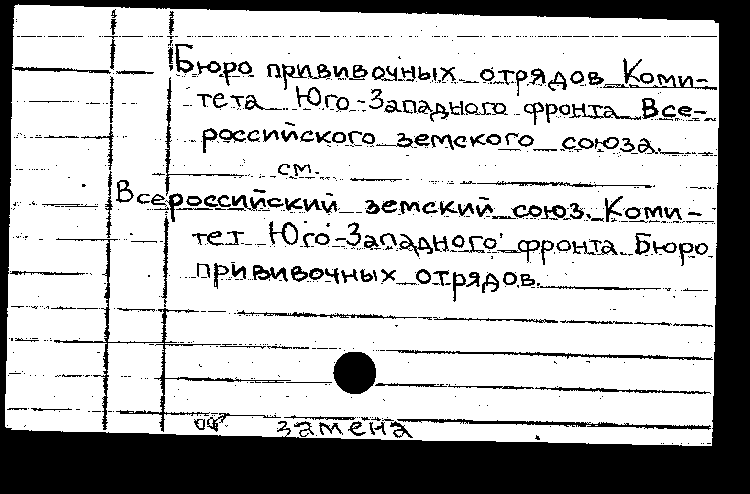 Бюро прививочных отрядов Коми-
тета Юго-Западного фронта Все-
российского земского союза.
см.
Всероссийский земский союз. Коми-
тет Юго-Западного фронта Бюро
прививочных отрядов.
замена